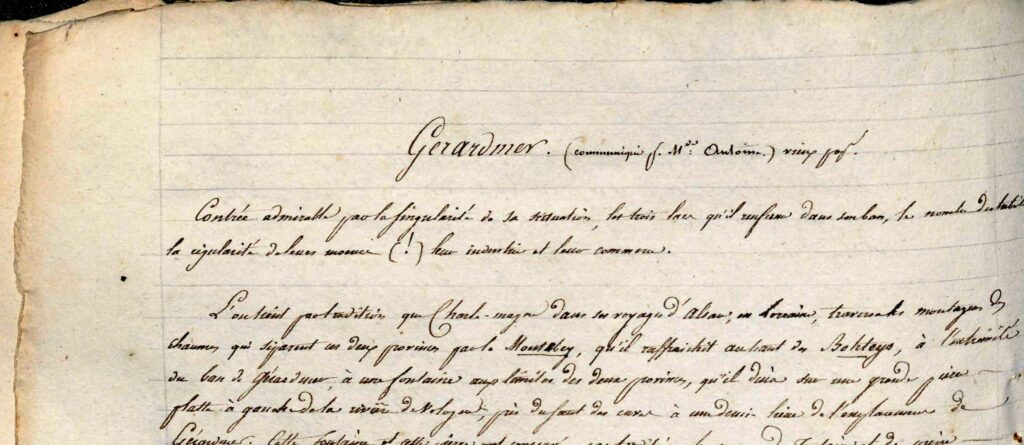 Gérardmer. (communiqué p. Mr. Antoine.) vieux
Contrée admirable par la singularité de sa situation, les trois lacs qu'il renferme dans son ban, le nombre des
la régularité de leurs moeurs (!) leur industrie et leur commerce.
L'on tient par tradition que Charle-magne dans ses voyages d'Alsace, en Lorraine, traversa les montagnes des
chaumes qui séparent ces deux provinces par le qu'il raffraichit au haut des à l'extrémité
du ban de Gérardmer, à une fontaine aux limites des deux provinces, qu'il dina sur une grande pierre
platte à gauche de la rivière de Vologne, près du saut des cuves à une demie lieue de l'emplacement de
Gérardmer. Cette fontaine et cette pierre ont conservé